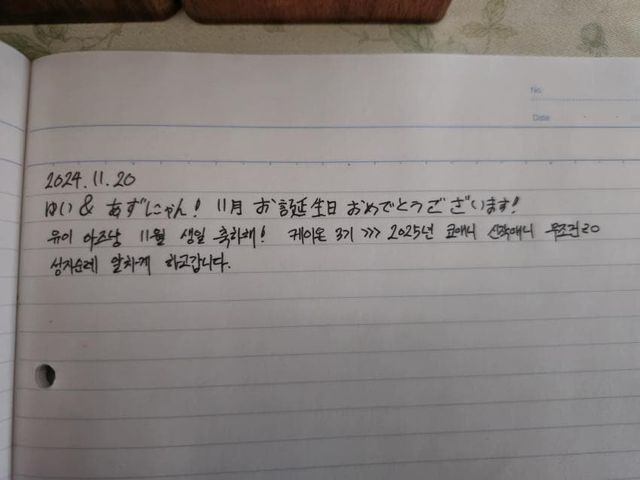 No.
Date
2024.11.20
ゆい & あずにゃん! 11月 お誕生日 おめでとうございます!
유이 아즈냥 11월 생일 축하해! 케이온 3기 >>> 2025년 쿄애니 신작애니 무조건 20
성지순례 알차게 하고갑니다.